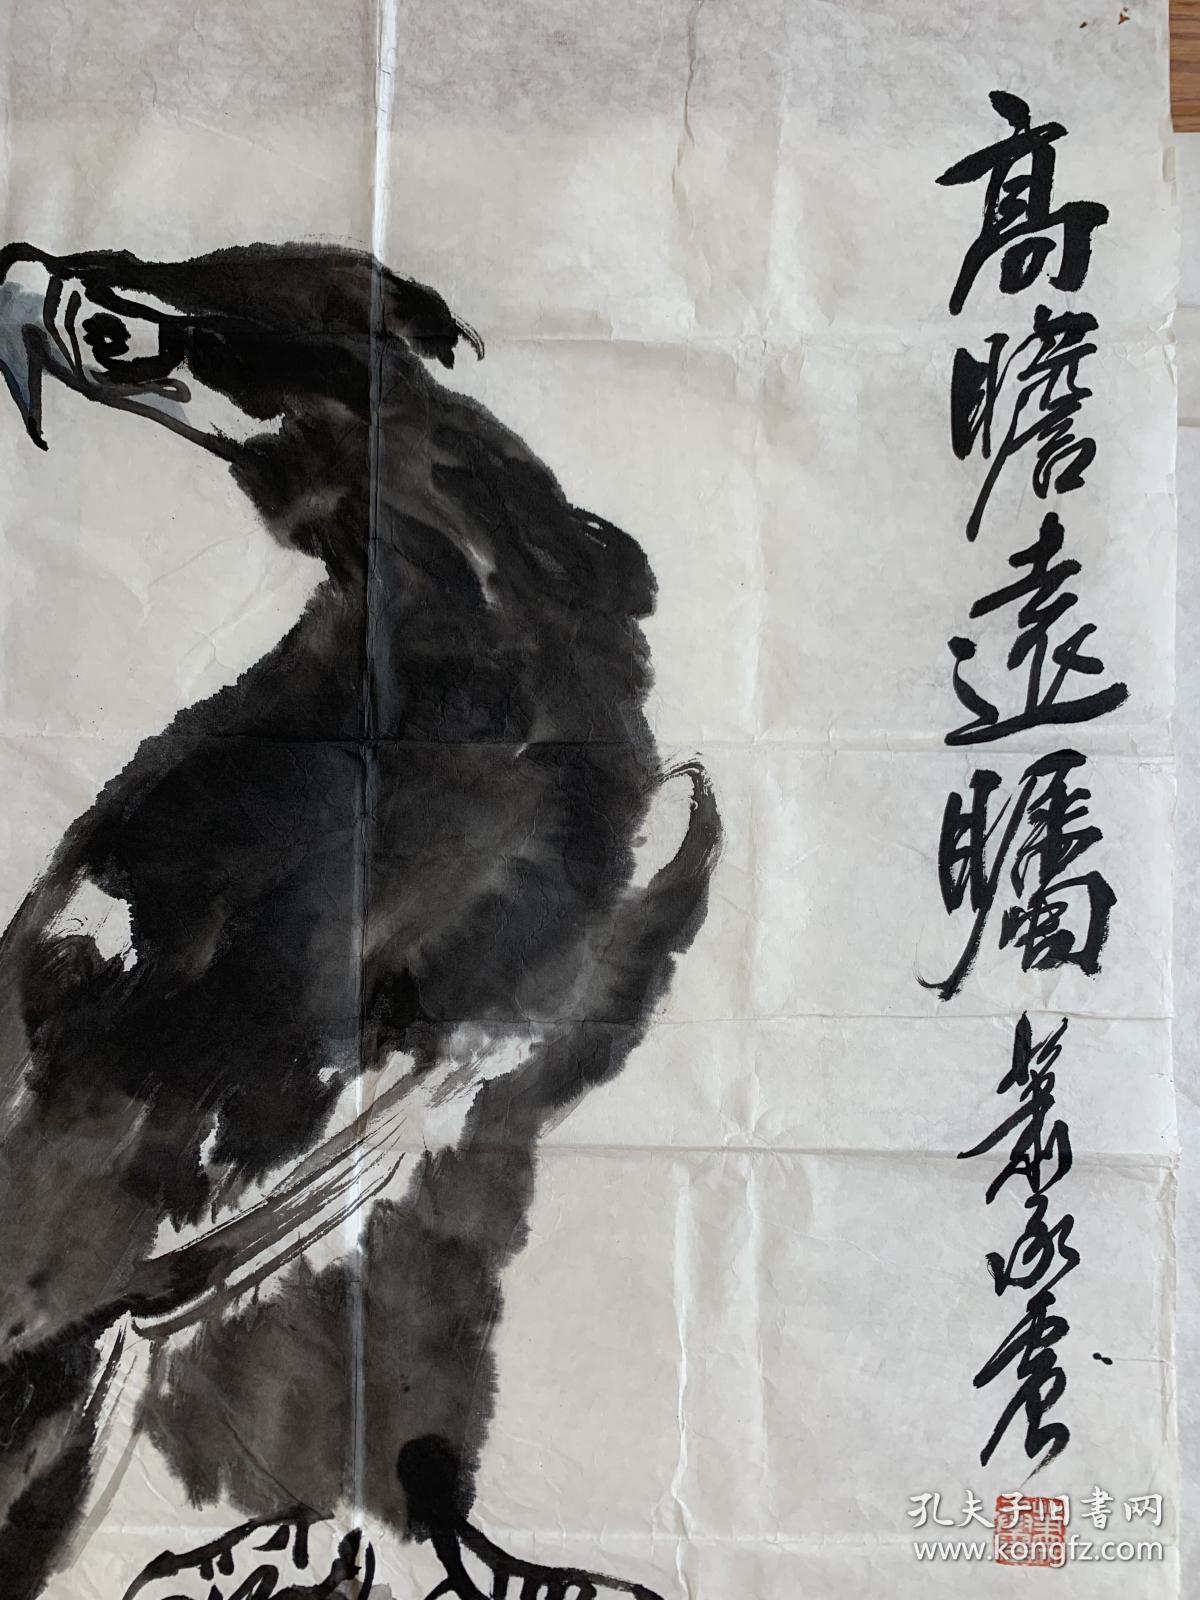 高瞻遠矚
蕭承震
孔夫子旧书网
www.kongfz.com